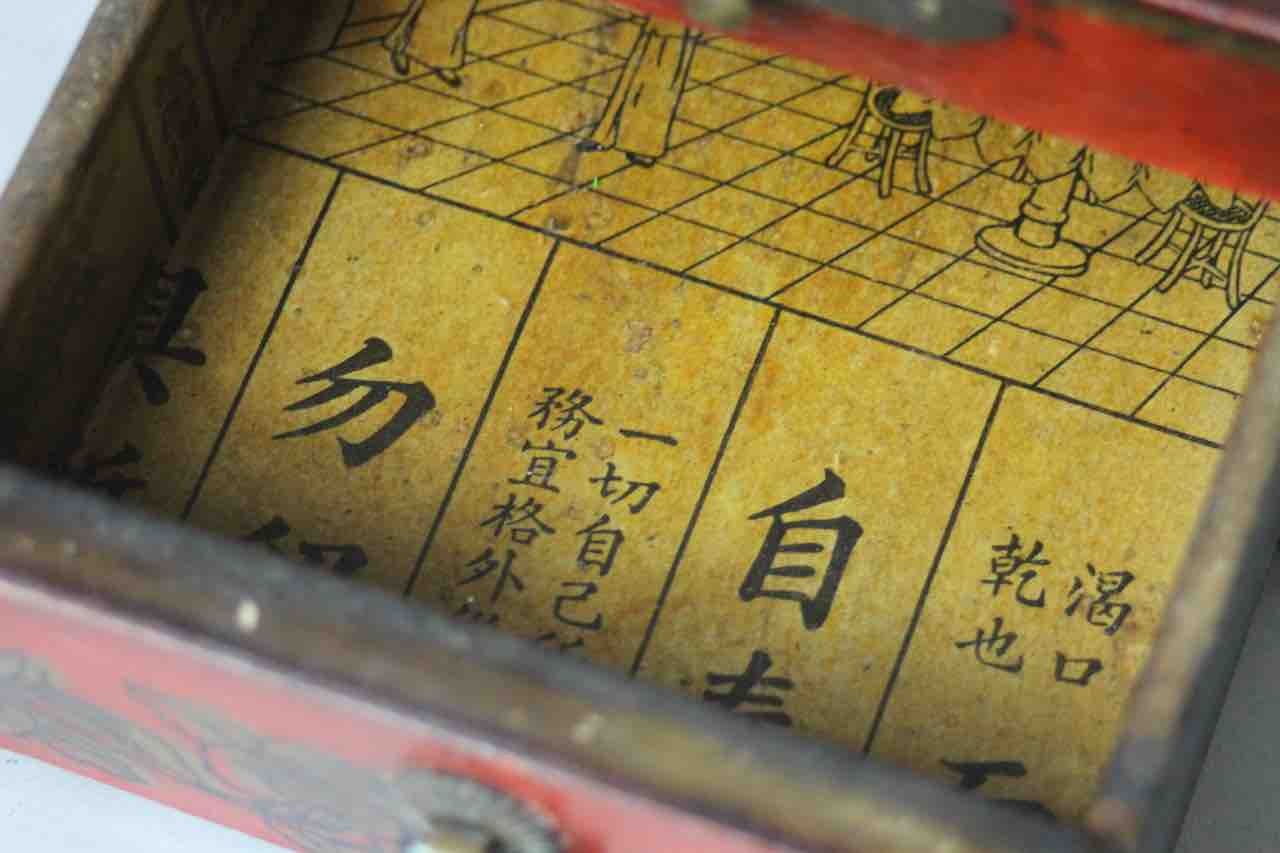 渴口
乾也
自
一切自己
務宜格外
勿
具